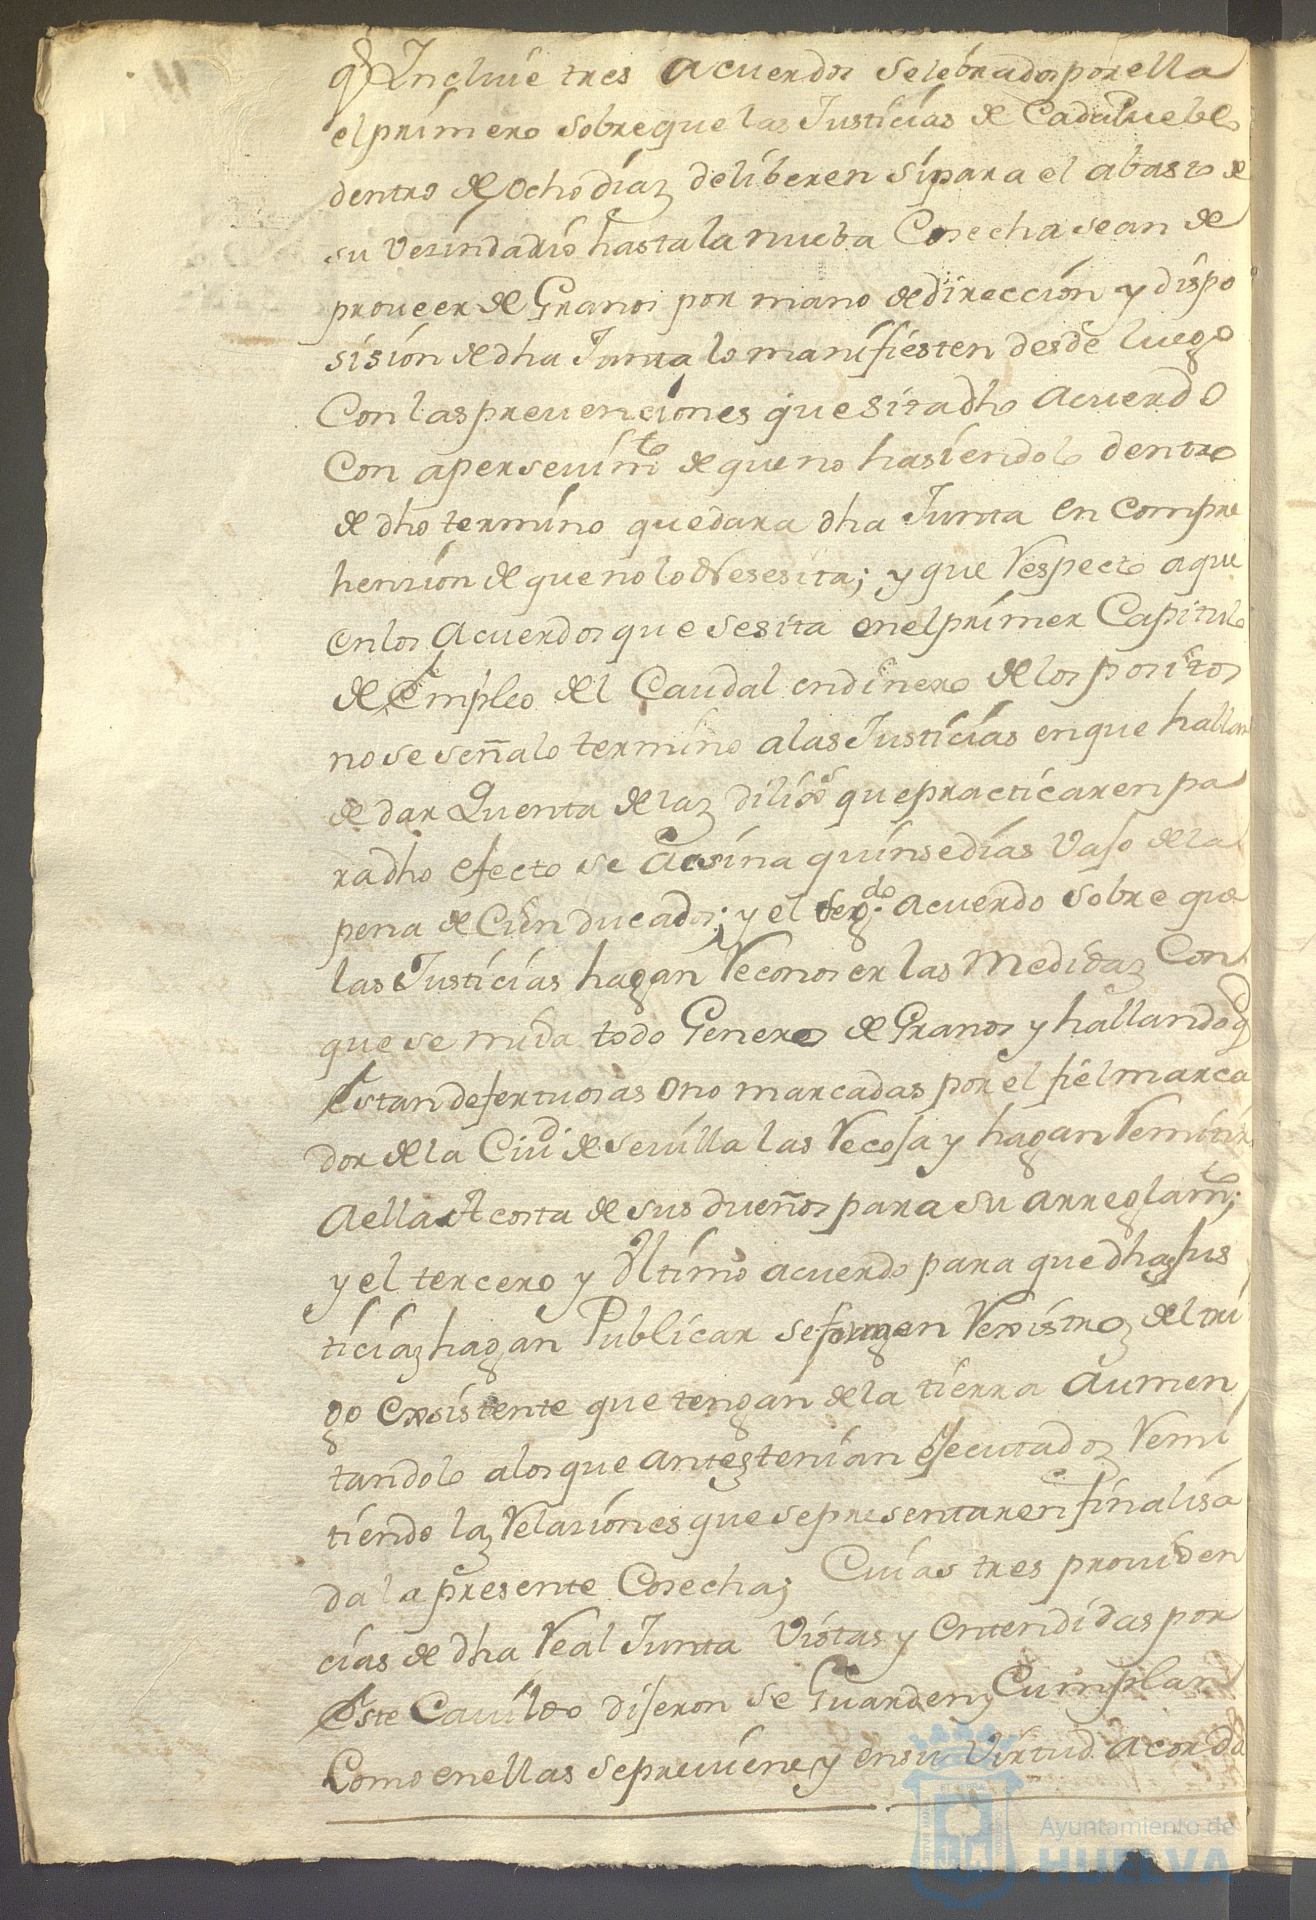 q.e Incluie tres acuerdos selebrados por ella
el primero sobre que las Justicias de Cada Pueblo
dentro de ocho diaz deliberen si para el abasto de
su vesindario hasta la nueba Cosecha se an de
proveer de Granos por mano de direccion y dispo
sision de dha Junta lo manifiesten desde luego
Con las prevenciones que sita dho acuerdo
Con apersevimto de que no hasiendolo dentro
de dho termino quedara dha Junta en compre
hension de que no lo Nesesita; y que respecto a que
en los acuerdos que se sita en el primer Capitulo
de Empleo del Caudal en dinero de los positos
no se señalo termino a las Justicias en que hallan
de dar Quenta de laz dilixs que practicaren pa
ra dho efecto se asina quinse dias vajo de la
pena de Cien ducados; y el segdo acuerdo sobre que
las Justicias hagan reconoser las medidaz Con
que se mida todo Genero de Granos y hallando q
estan defectuosas o no marcadas por el fiel marca
dor de la Ciud de Sevilla las recoja y hagan remitir
a ella a costa de sus dueños para su arreglamto;
y el tercero y ultimo acuerdo para que dhaz Jus
ticiaz hagan Publicar se formen rexistroz del tri
go exsistente que tengan de la tierra aumen
tandolo a los que antez tenian ejecutadoz remi
tiendo laz relasiones que se presentaren finalisa
da la presente Cosecha; Cuias tres providen
cias de dha real Junta vistas y entendidas por
este Cavildo dijeron se Guarden y Cumplan
Como en ellas se previene y en su virtud acorda
Ayuntamiento de
HUELVA